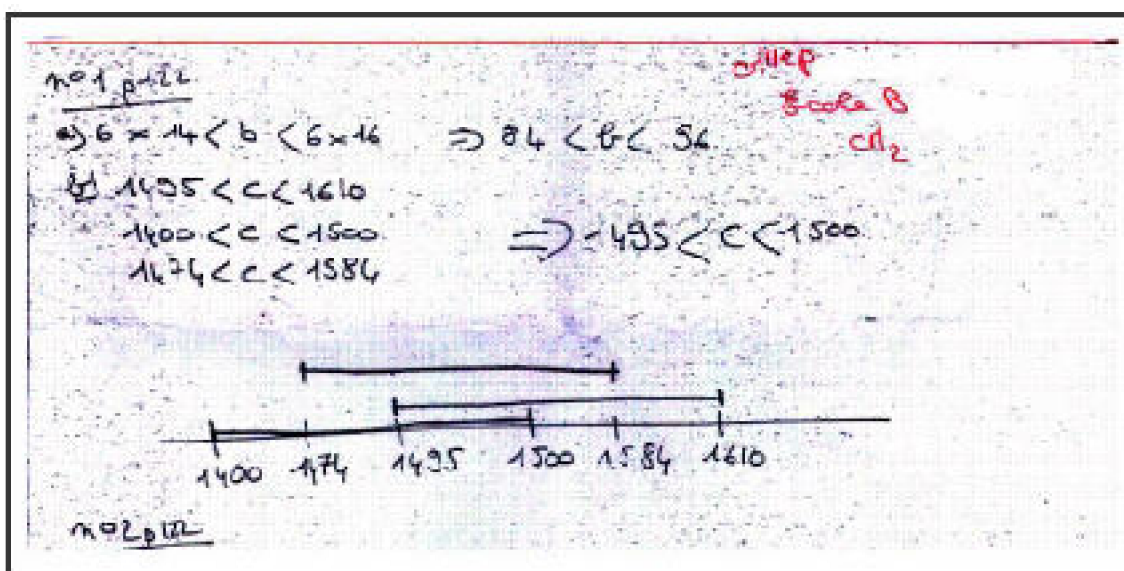 n°1 p122
Mep
Ecole B
CM2
a) 6 × 14 < b < 6 × 16 => 84 < b < 96
b) 1495 < c < 1610
1400 < c < 1500 => 1495 < c < 1500
1474 < c < 1584
1400 1474 1495 1500 1584 1610
n°2 p122